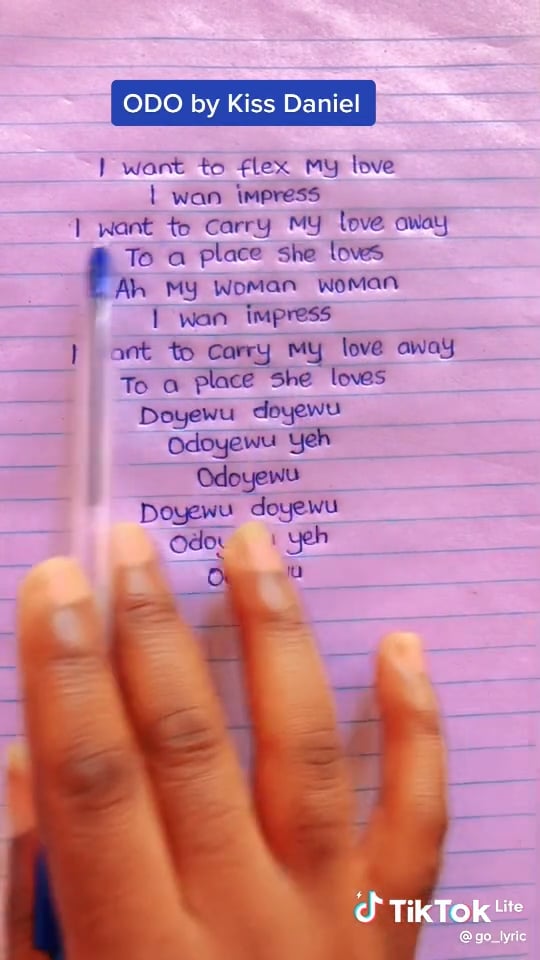 ODO by Kiss Daniel
I want to flex my love
I wan impress
I want to carry my love away
To a place she loves
Ah my woman woman
I wan impress
I ant to carry my love away
To a place she loves
Doyewu doyewu
Odoyewu yeh
Odoyewu
Doyewu doyewu
yeh
TikTok Lite
@go_lyric